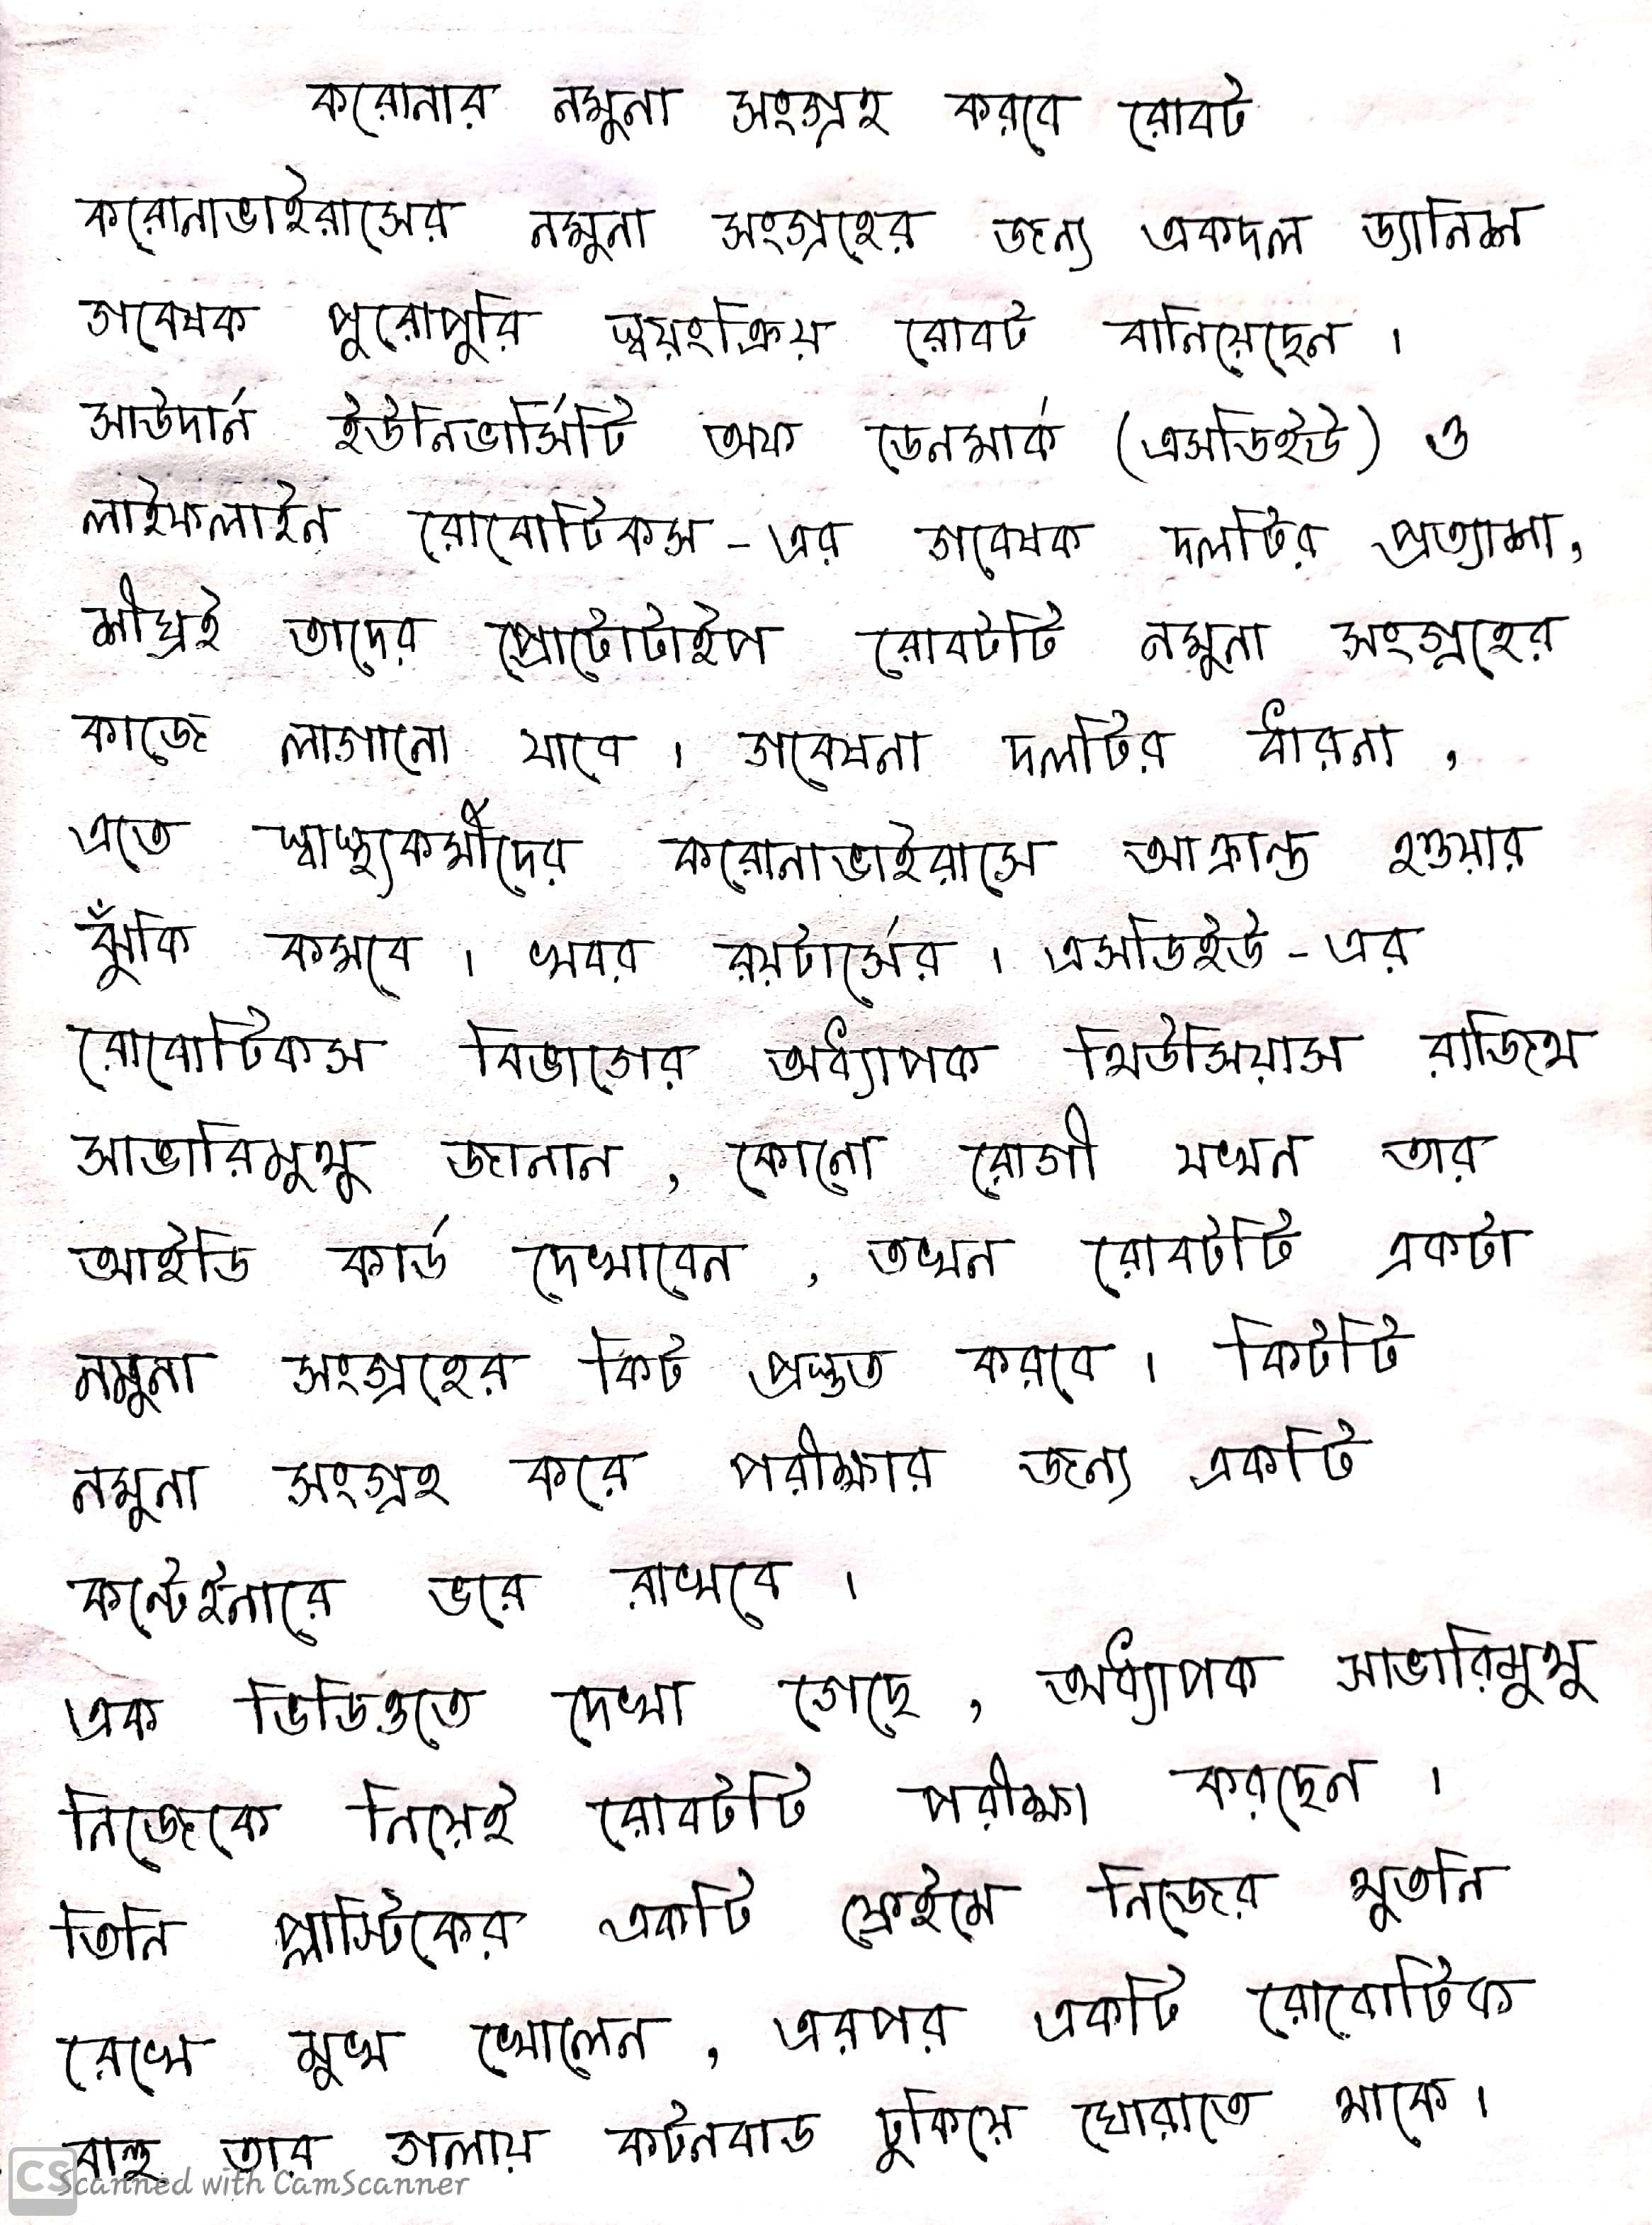 করোনার নমুনা সংগ্রহ করবে রোবট
করোনাভাইরাসের নমুনা সংগ্রহের জন্য একদল ড্যানিশ
গবেষক পুরোপুরি স্বয়ংক্রিয় রোবট বানিয়েছেন ।
সাউদার্ন ইউনিভার্সিটি অফ ডেনমার্ক (এসডিইউ) ও
লাইফলাইন রোবোটিকস - এর গবেষক দলটির প্রত্যাশা,
শীঘ্রই তাদের প্রোটোটাইপ রোবটটি নমুনা সংগ্রহের
কাজে লাগানো যাবে । গবেষনা দলটির ধারনা ,
এতে স্বাস্থ্যকর্মীদের করোনাভাইরাসে আক্রান্ত হওয়ার
ঝুঁকি কমবে । খবর রয়টার্সের । এসডিইউ - এর
রোবোটিকস বিভাগের অধ্যাপক থিউসিয়াস রাজিথ
সাভারিমুথু জানান , কোনো রোগী যখন তার
আইডি কার্ড দেখাবেন , তখন রোবটটি একটা
নমুনা সংগ্রহের কিট প্রস্তুত করবে । কিটটি
নমুনা সংগ্রহ করে পরীক্ষার জন্য একটি
কন্টেইনারে ভরে রাখবে ।
এক ভিডিওতে দেখা গেছে , অধ্যাপক সাভারিমুথু
নিজেকে নিয়েই রোবটটি পরীক্ষা করছেন ।
তিনি প্লাস্টিকের একটি ফ্রেইমে নিজের থুতনি
রেখে মুখ খোলেন , এরপর একটি রোবোটিক
বাহু তার গলায় কটনবাড ঢুকিয়ে ঘোরাতে থাকে ।
CS Scanned with CamScanner